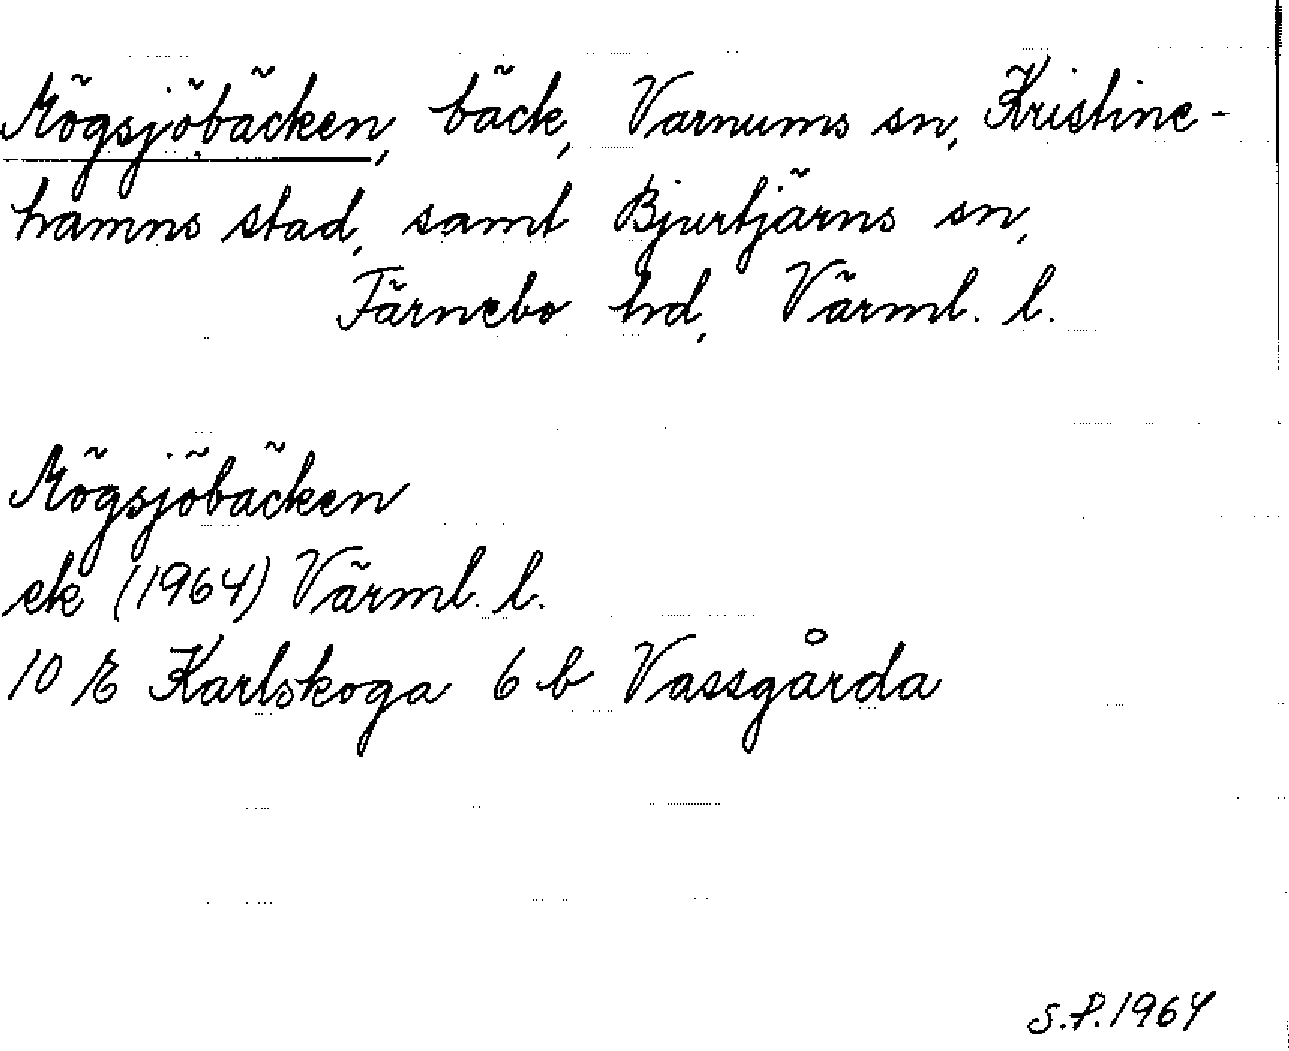 Mögsjöbäcken, bäck, Varnums sn, Kristine-
hamns stad, samt Bjurtjärns sn,
Färnebo hd, Värml. l.
Mögsjöbäcken
ek (1964) Värml. l.
10 E Karlskoga 6 b Vassgårda
S.P. 1964